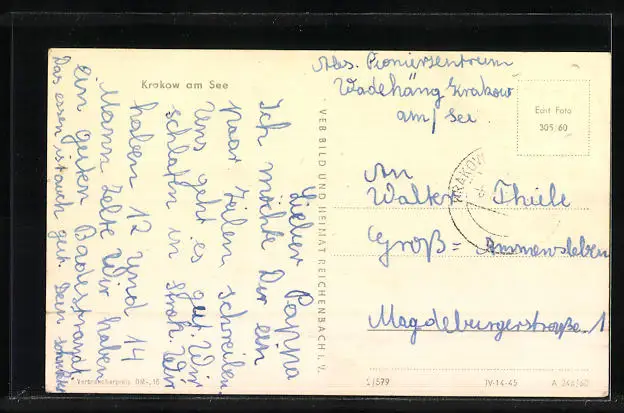 Krakow am See
Lieber Pappa
Ich möchte Dir ein
paar Zeilen schreiben
Uns geht es gut. Wir
schlafen in Stroh. Wir
haben 12 und 14
Mann Zelte Wir haben
ein guten Badestrand
Das essen ist auch gut. Dein
Verbraucherpreis DM -,15
VEB BILD UND HEIMAT REICHENBACH i. V.
Abs. Pionierzentrum
Wadehäng Krakow
am/See.
Echt Foto
305/60
KRAKOW
An
Walter Thiele
Groß = Ammensleben
Magdeburgerstraße 1
IV-14-45
A 246/60